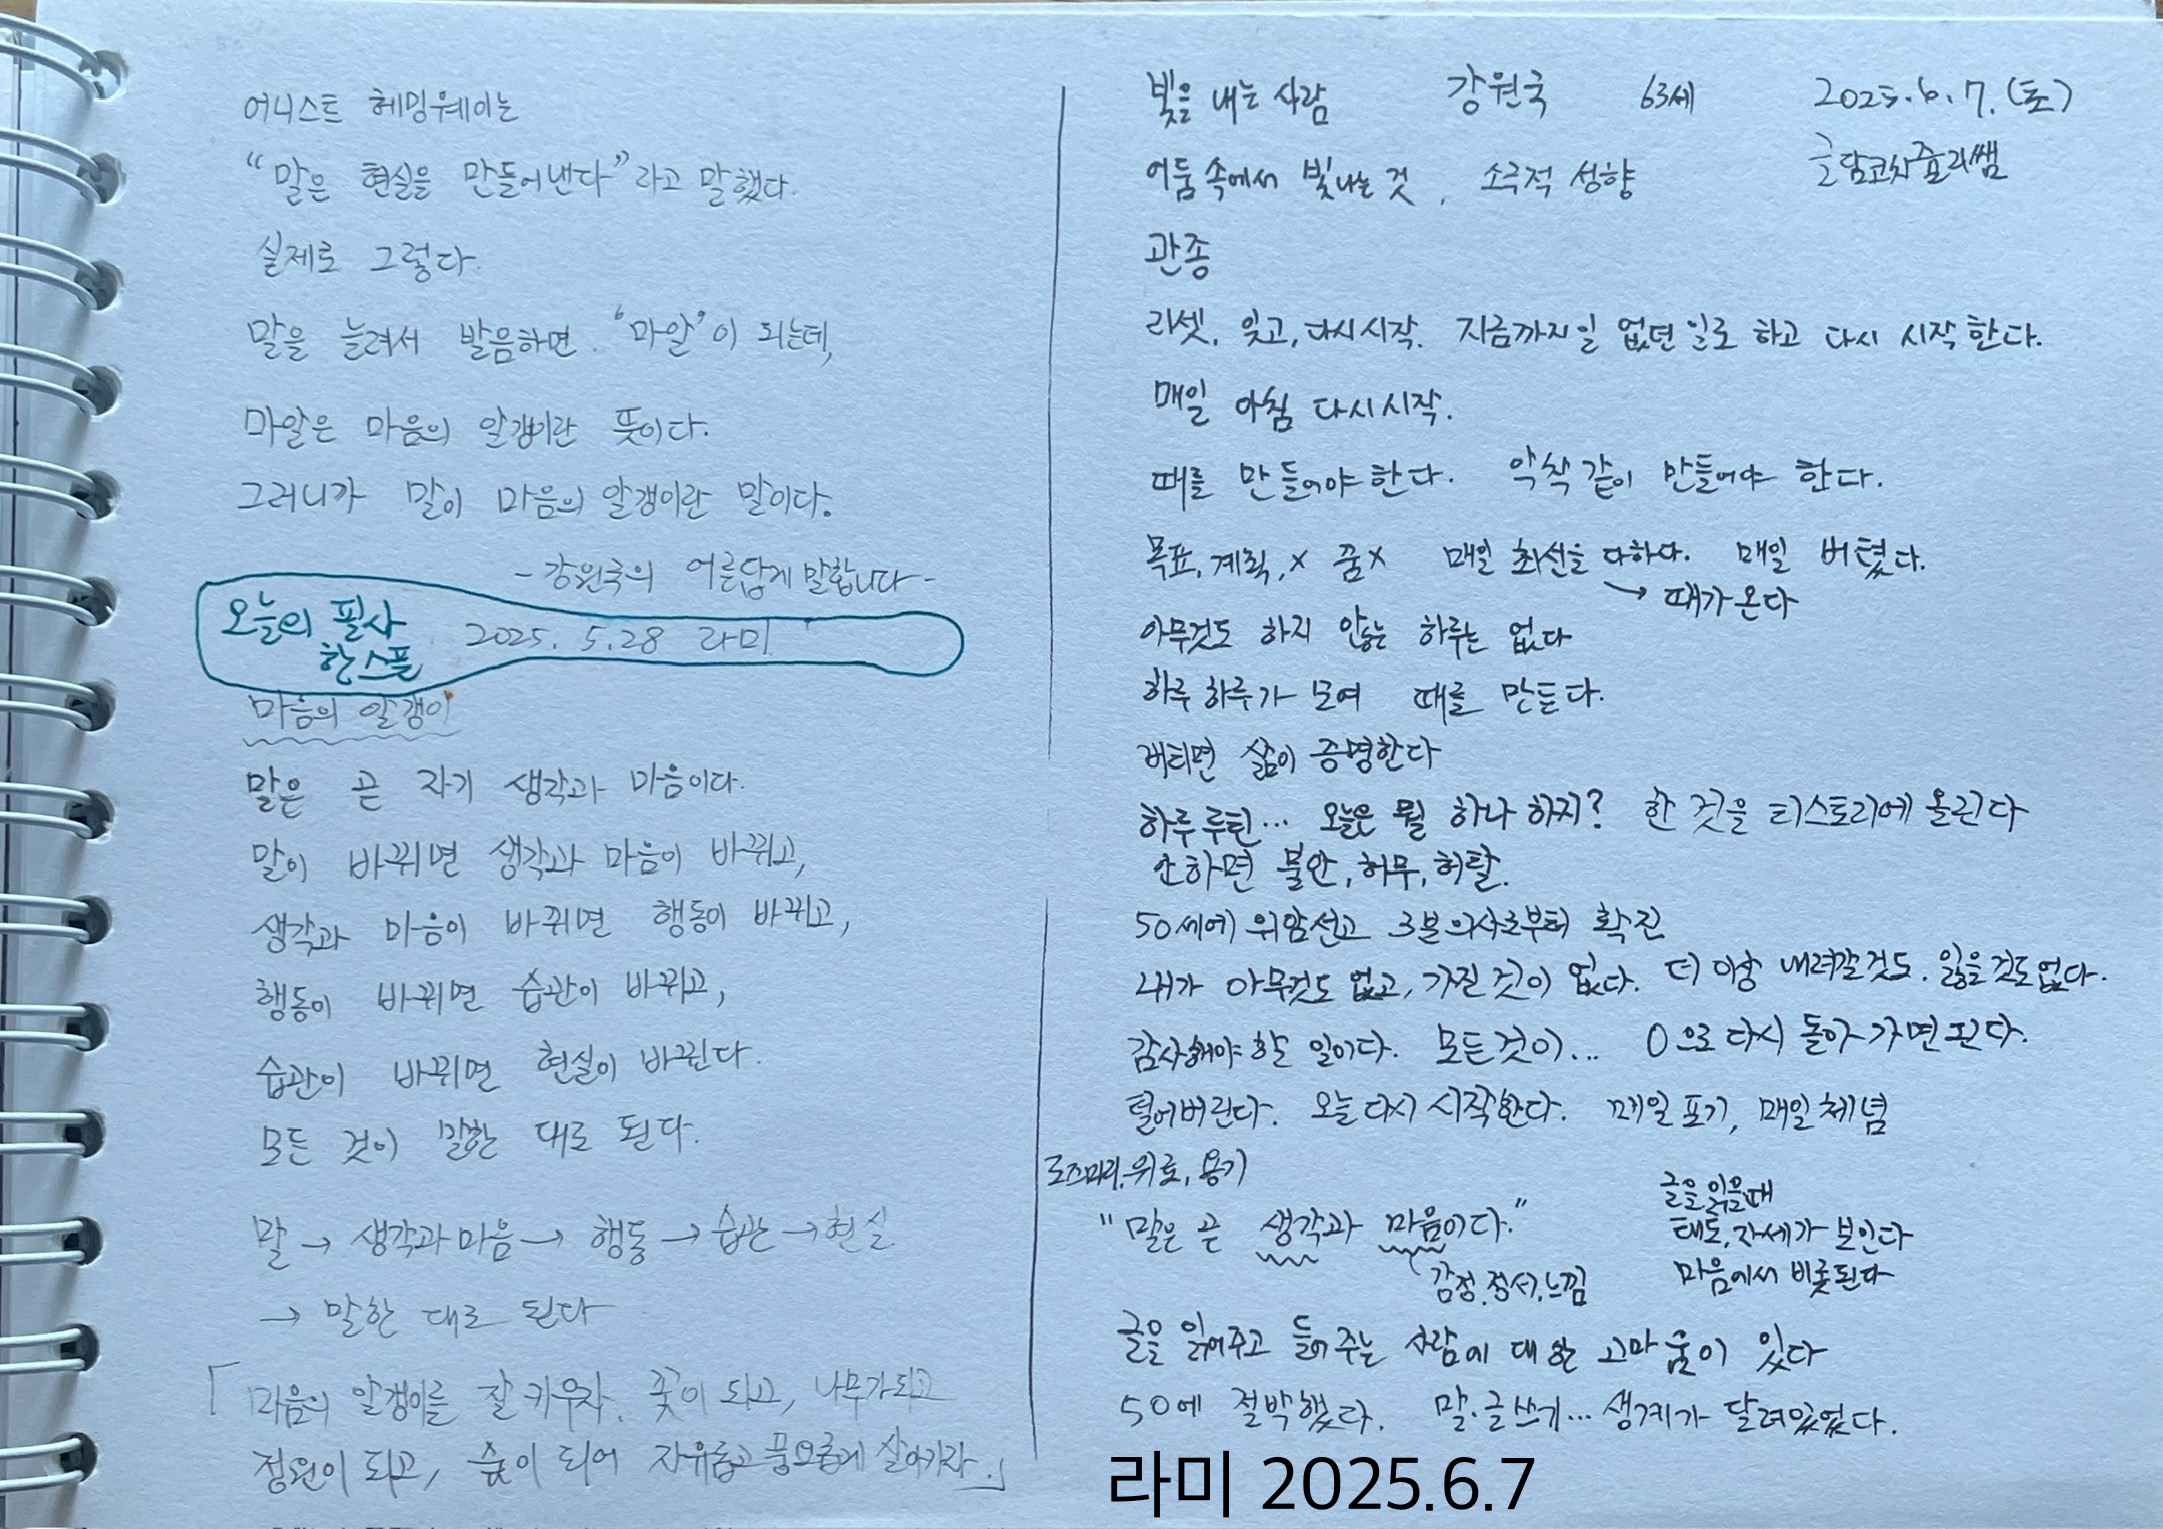 어니스트 헤밍웨이는
“말은 현실을 만들어낸다”라고 말했다.
실제로 그렇다.
말을 늘려서 발음하면 '마알'이 되는데,
마알은 마음의 알갱이란 뜻이다.
그러니까 말이 마음의 알갱이란 말이다.
- 강원국의 어른답게 말합니다 -
오늘의 필사
한스푼
2025. 5. 28 라미
마음의 알갱이
말은 곧 자기 생각과 마음이다.
말이 바뀌면 생각과 마음이 바뀌고,
생각과 마음이 바뀌면 행동이 바뀌고,
행동이 바뀌면 습관이 바뀌고,
습관이 바뀌면 현실이 바뀐다.
모든 것이 말한 대로 된다.
말 → 생각과 마음 → 행동 → 습관 → 현실
→ 말한 대로 된다
「마음의 알갱이를 잘 키우자. 꽃이 되고, 나무가 되고
정원이 되고, 숲이 되어 자유롭고 풍요롭게 살아가자.」
빛을 내는 사람 강원국 63세 2025. 6. 7. (토)
글담코치줄리쌤
어둠 속에서 빛나는 것, 소극적 성향
관종
리셋, 잊고, 다시 시작. 지금까지 일 없던 일로 하고 다시 시작한다.
매일 아침 다시 시작.
때를 만들어야 한다. 악착같이 만들어야 한다.
목표, 계획, x 꿈 x 매일 최선을 다하다. 매일 버텼다.
→ 때가 온다
아무것도 하지 않는 하루는 없다
하루하루가 모여 때를 만든다.
버티면 삶이 증명한다
하루 루틴... 오늘은 뭘 하나 하지? 한 것을 티스토리에 올린다
안하면 불안, 허무, 허탈.
50세에 위암선고 3분 의사로부터 확진
내가 아무것도 없고, 가진 것이 없다. 더 이상 내려갈것도. 잃을 것도 없다.
감사해야 할 일이다. 모든것이... 0으로 다시 돌아가면 된다.
털어버린다. 오늘 다시 시작한다. 매일 포기, 매일 체념
로즈마리, 위로, 용기
"말은 곧 생각과 마음이다."
감정, 정서, 느낌
글을 읽을때
태도, 자세가 보인다
마음에서 비롯된다
글을 읽어주고 들어주는 사람에 대한 고마움이 있다
50에 절박했다. 말·글쓰기... 생계가 달려있었다.
라미 2025.6.7